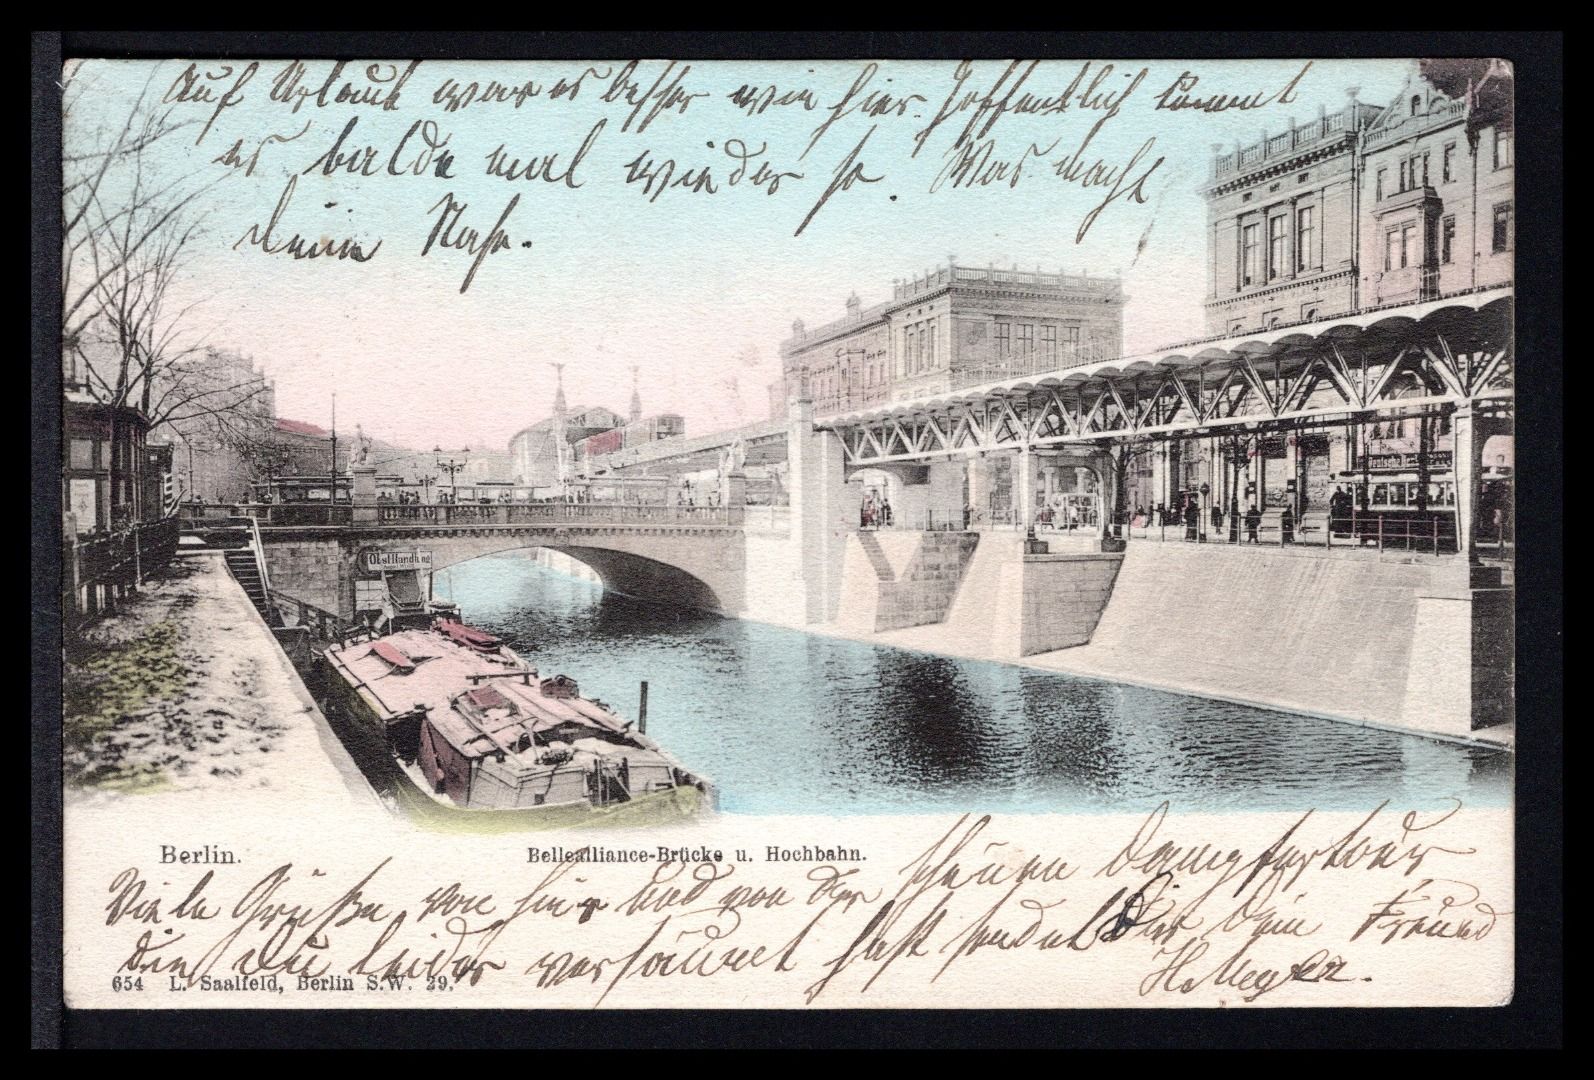 Auf Urlaub war es besser wie hier. Hoffentlich kommt
es balde mal wieder so. Was macht
deine Nase.
Obsthandlung
Deutsche
Berlin.
Bellealliance-Brücke u. Hochbahn.
Viele Grüße von hier und von der schönen Dampfertour
die Du leider versäumt hast sendet Dir Dein Freund
H. Meyer
654 L. Saalfeld, Berlin S.W. 29.